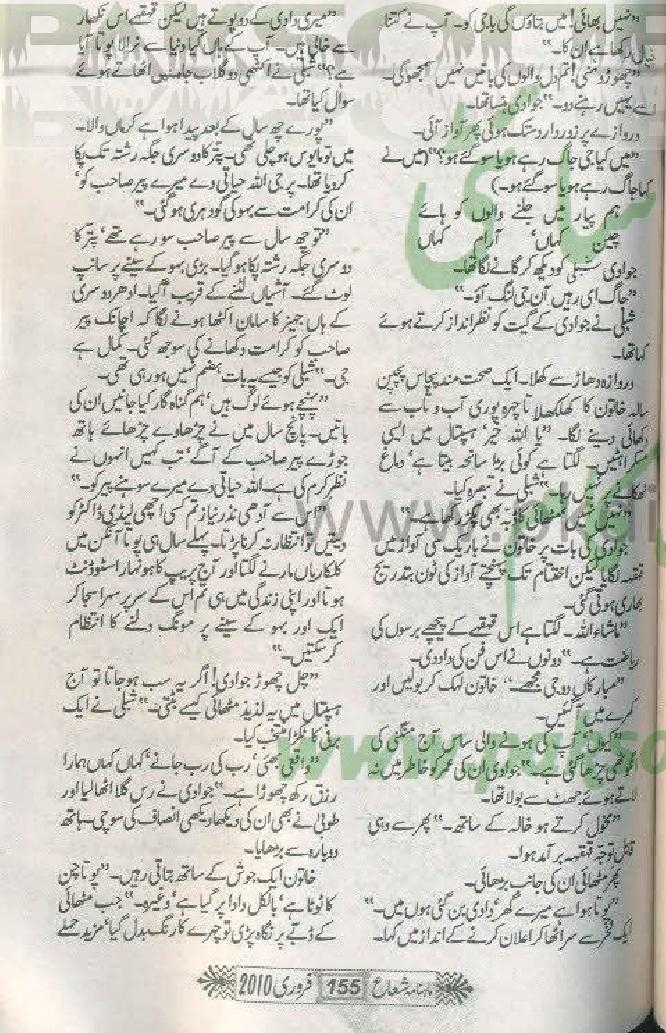 ”نہیں بھائی! میں بتاؤں گی باجی کو۔ آپ نے کتنا
خیال رکھا ہے ان کا۔“
”چھوڑو منی! تم دل والوں کی باتیں نہیں سمجھو گی۔
اسے یہیں رہنے دو۔“ جوادی ہنسا تھا۔
دروازے پر زوردار دستک ہوئی پھر آواز آئی۔
”میں کیا جی جاگ رہے ہو یا سو گئے ہو؟“ (میں نے
کہا جاگ رہے ہو یا سو گئے ہو۔)
ہم پیار میں جلنے والوں کو ہائے
چین کہاں‘ آرام کہاں
جوادی شبلی کو دیکھ کر گانے لگا تھا۔
”جاگ ای رہیں آں جی لنگ آؤ۔“
شبلی نے جوادی کے گیت کو نظر انداز کرتے ہوئے
کہا تھا۔
دروازہ دھاڑ سے کھلا۔ ایک صحت مند پچاس پچپن
سالہ خاتون کا کھلکھلاتا چہرہ پوری آب و تاب سے
دکھائی دینے لگا۔ ”یا اللہ خیر‘ ہسپتال میں ایسی
لگتا ہے کوئی بڑا سانحہ بیتا ہے‘ دماغ
ٹھکانے پر نہیں رہا۔“ شبلی نے تبصرہ کیا۔
”نہیں نہیں مٹھائی کا ڈبہ بھی پکڑ رکھا ہے۔“
جوادی کی بات پر خاتون نے باریک سی آواز میں
قہقہہ لگایا لیکن اختتام تک پہنچتے آواز کی ٹون بتدریج
بھاری ہوتی گئی۔
”ماشاءاللہ۔ لگتا ہے اس قہقہے کے پیچھے برسوں کی
ریاضت ہے۔“ دونوں نے اس فن کی داد دی۔
”مبارکاں ودھ جی مجھے۔“ خاتون لہک کر بولیں اور
کمرے میں آ گئیں۔
”کیوں‘ آپ کی ہونے والی ساس آج منگنی کی
انگوٹھی چڑھا گئی ہے۔“ جوادی ان کی عمر کو خاطر میں نہ
لاتے ہوئے جھٹ سے بولا تھا۔
”مخول کرتے ہو خالہ کے ساتھ۔“ پھر سے وہی
قابل توجہ قہقہہ برآمد ہوا۔
پھر مٹھائی ان کی جانب بڑھائی۔
”پوتا ہوا ہے میرے گھر‘ دادی بن گئی ہوں میں۔“
ایک فخر سے سر اٹھا کر اعلان کرنے کے انداز میں کہا۔
”میری دادی کے دو پوتے ہیں لیکن قہقہے اس نکھار
سے خالی ہیں۔ آپ کے ہاں کیا دنیا سے نرالا پوتا آیا
ہے؟“ شبلی نے اکٹھی دو گلاب جامنیں اٹھاتے ہوئے
سوال کیا تھا۔
”پورے چھ سال کے بعد پیدا ہوا ہے کرماں والا۔
میں تو مایوس ہو چلی تھی۔ پتر کا دوسری جگہ رشتہ تک پکا
کر دیا تھا۔ پر جی اللہ حیاتی دے میرے پیر صاحب کو‘
ان کی کرامت سے بہو کی گود ہری ہو گئی۔“
”تو چھ سال سے پیر صاحب سو رہے تھے‘ پتر کا
دوسری جگہ رشتہ پکا ہو گیا۔ بڑی بہو کے سینے پر سانپ
لوٹ گئے۔ آشیاں لٹنے کے قریب آ گیا۔ ادھر دوسری
کے ہاں جہیز کا سامان اکٹھا ہونے لگا کہ اچانک پیر
صاحب کو کرامت دکھانے کی سوجھ گئی۔ کمال ہے
جی۔“ شبلی کو جیسے یہ بات ہضم نہیں ہو رہی تھی۔
”پہنچے ہوئے لوگ ہیں‘ ہم گناہ گار کیا جانیں ان کی
باتیں۔ پانچ سال میں نے چڑھاوے چڑھائے ہاتھ
جوڑے پیر صاحب کے آگے‘ تب کہیں انہوں نے
نظر کرم کی ہے۔ اللہ حیاتی دے میرے سوہنے پیر کو۔“
”اس سے آدھی نذر نیاز تم کسی اچھی لیڈی ڈاکٹر کو
دیتیں تو انتظار نہ کرنا پڑتا۔ پہلے سال ہی پوتا آنگن میں
کلکاریاں مارنے لگتا اور آج پریپ کا ہونہار اسٹوڈنٹ
ہوتا اور اپنی زندگی میں ہی تم اس کے سر پر سہرا سجا کر
ایک اور بہو کے سینے پر مونگ دلنے کا انتظام
کر سکتیں۔“
”چل چھوڑ جوادی! اگر یہ سب ہو جاتا تو آج
ہسپتال میں یہ لذیذ مٹھائی کیسے بٹتی۔“ شبلی نے ایک
برفی کا ٹکڑا منتخب کیا۔
”واقعی بھئی‘ رب کی رب جانے‘ کہاں کہاں ہمارا
رزق رکھ چھوڑا ہے۔“ جوادی نے رس گلا اٹھا لیا اور
طوبیٰ نے بھی ان کی دیکھا دیکھی انصاف کی سوچی۔ ہاتھ
دوبارہ سے بڑھایا۔
خاتون ایک جوش کے ساتھ بتاتی رہیں۔ ”پوتا چن
کا ٹوٹا ہے‘ بالکل دادا پر گیا ہے‘ وغیرہ۔“ جب مٹھائی
کے ڈبے پر نگاہ پڑی تو چہرے کا رنگ بدل گیا‘ مزید حملے
ماہنامہ شعاع 155 فروری 2010